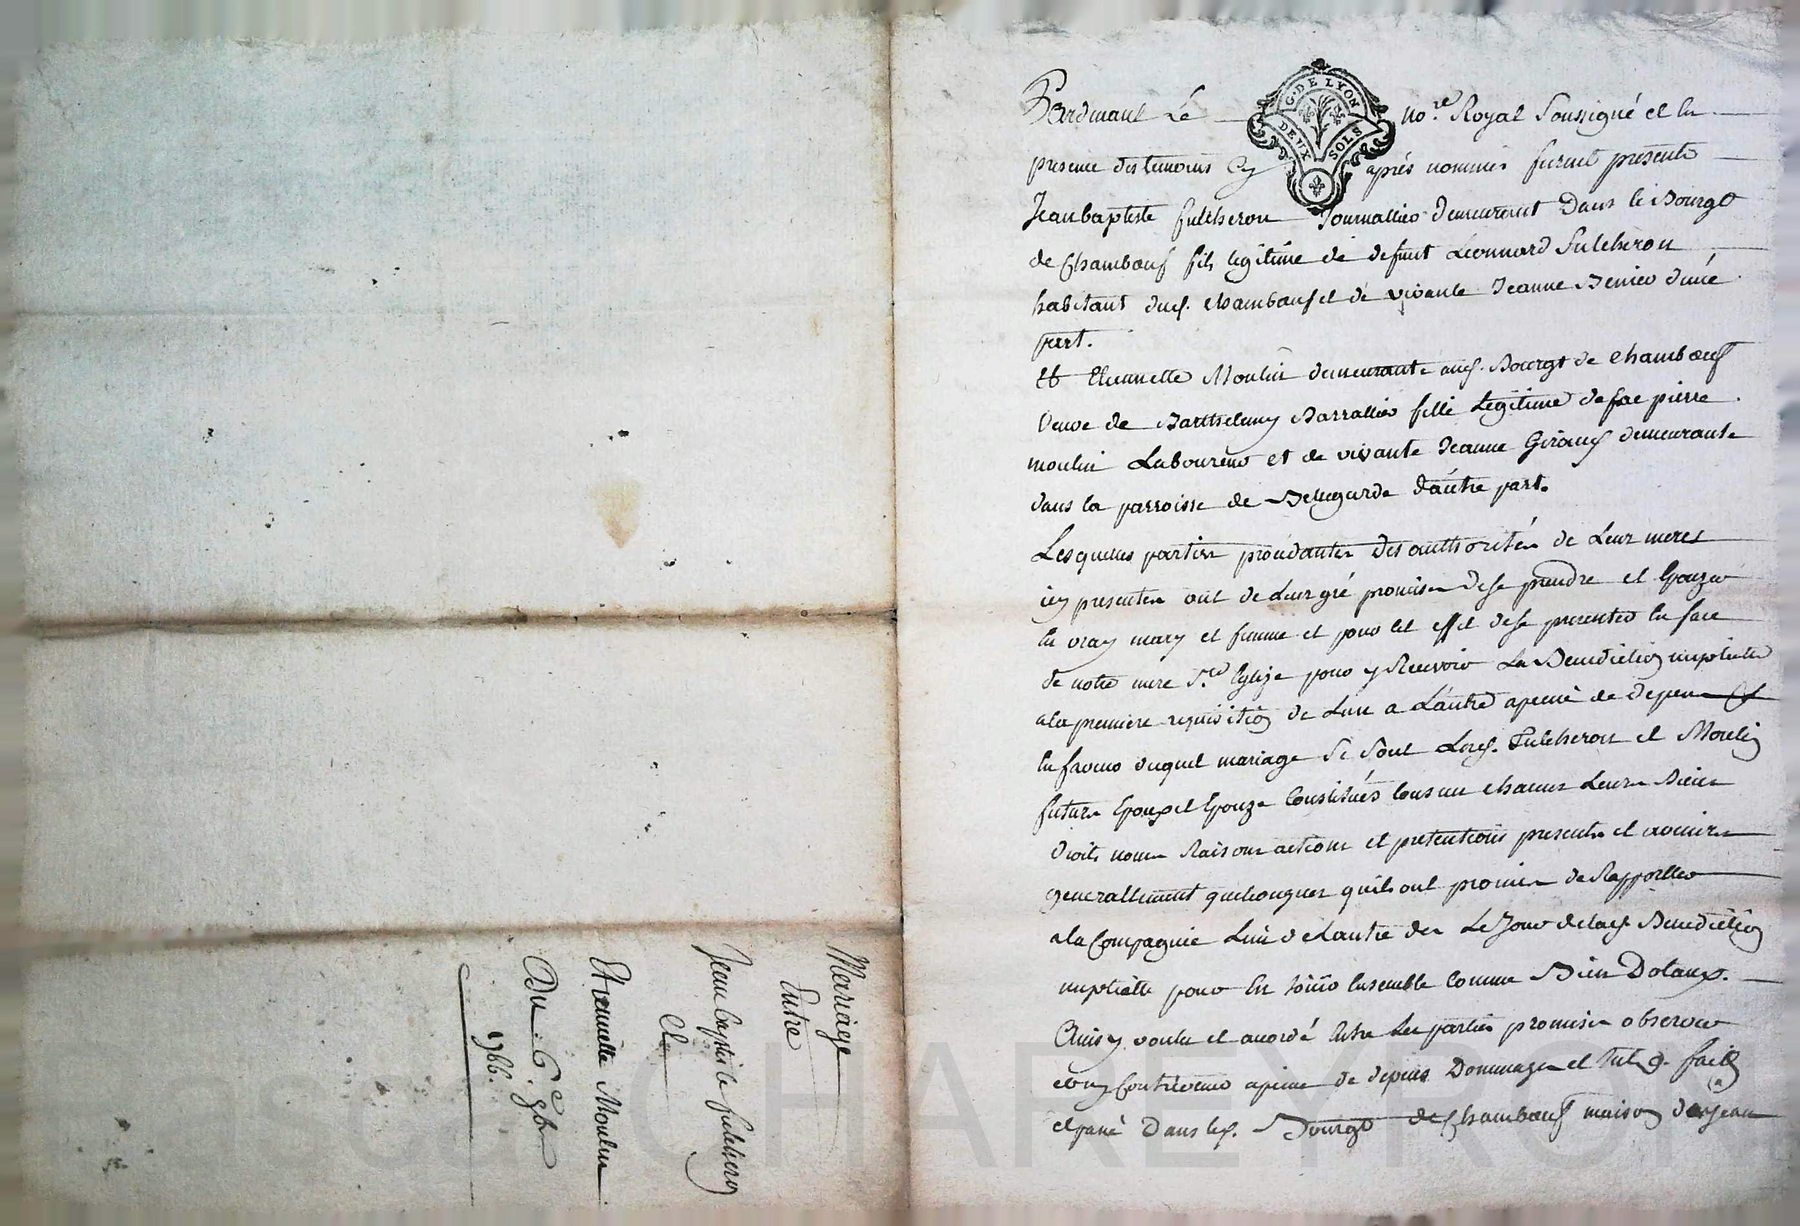 Pardevant Le no.re Royal Soussigné et En
presence des temoins Cy après nommés furent présents
Jean baptiste fulcheron Journallier demeurant Dans le Bourgt
de Chambœuf fils legitime de defunt Léonnard Fulcheron
habitant dud. Chambœuf et de vivante Jeanne d'une
part.
Et Etiennette Moulin demeurante aud. Bourgt de Chambœuf
Veuve de Barthelemy Barrallier fille Legitime de feu pierre
moulin Laboureur et de vivante Jeanne Giraud demeurante
dans la parroisse de Bellegarde d'autre part.
Lesquelles parties procedantes des authorités de Leur meres
icy presentes ont de Leur gré promises de se prendre et Epouzer
En vray mary et femme et pour cet effet de se presenter En face
de notre mere S.te Eglize pour y Recevoir La Benediction nuptialle
a la premiere requisition de Lun a Lautre a peine de depens
En faveur duquel mariage Se Sont Lesd. Fulcheron et Moulin
futurs Epoux et Epouze Constitués tous un chacuns Leurs Biens
droits noms Raisons actions et pretentions presents et avenirs
generallement quelconques quils ont promises de Rapporter
a la Compagnie Lun de Lautre des Le Jour de lad. Benediction
nuptialle pour En Jouir Ensemble Comme Biens Dotaux.
Ainsy voulu et accordé Entre Les parties promises observer
et ny Contrevenir apeine de depens Dommages et Int. fait
et passé Dans led. Bourgt de Chambœuf maison de Jean
Mariage
Entre
Jean baptiste fulcheron
Et
Etiennette Moulin
Du 6.e 9bre
1766.
G. DE LYON
DEUX SOLS
CHAREYRON